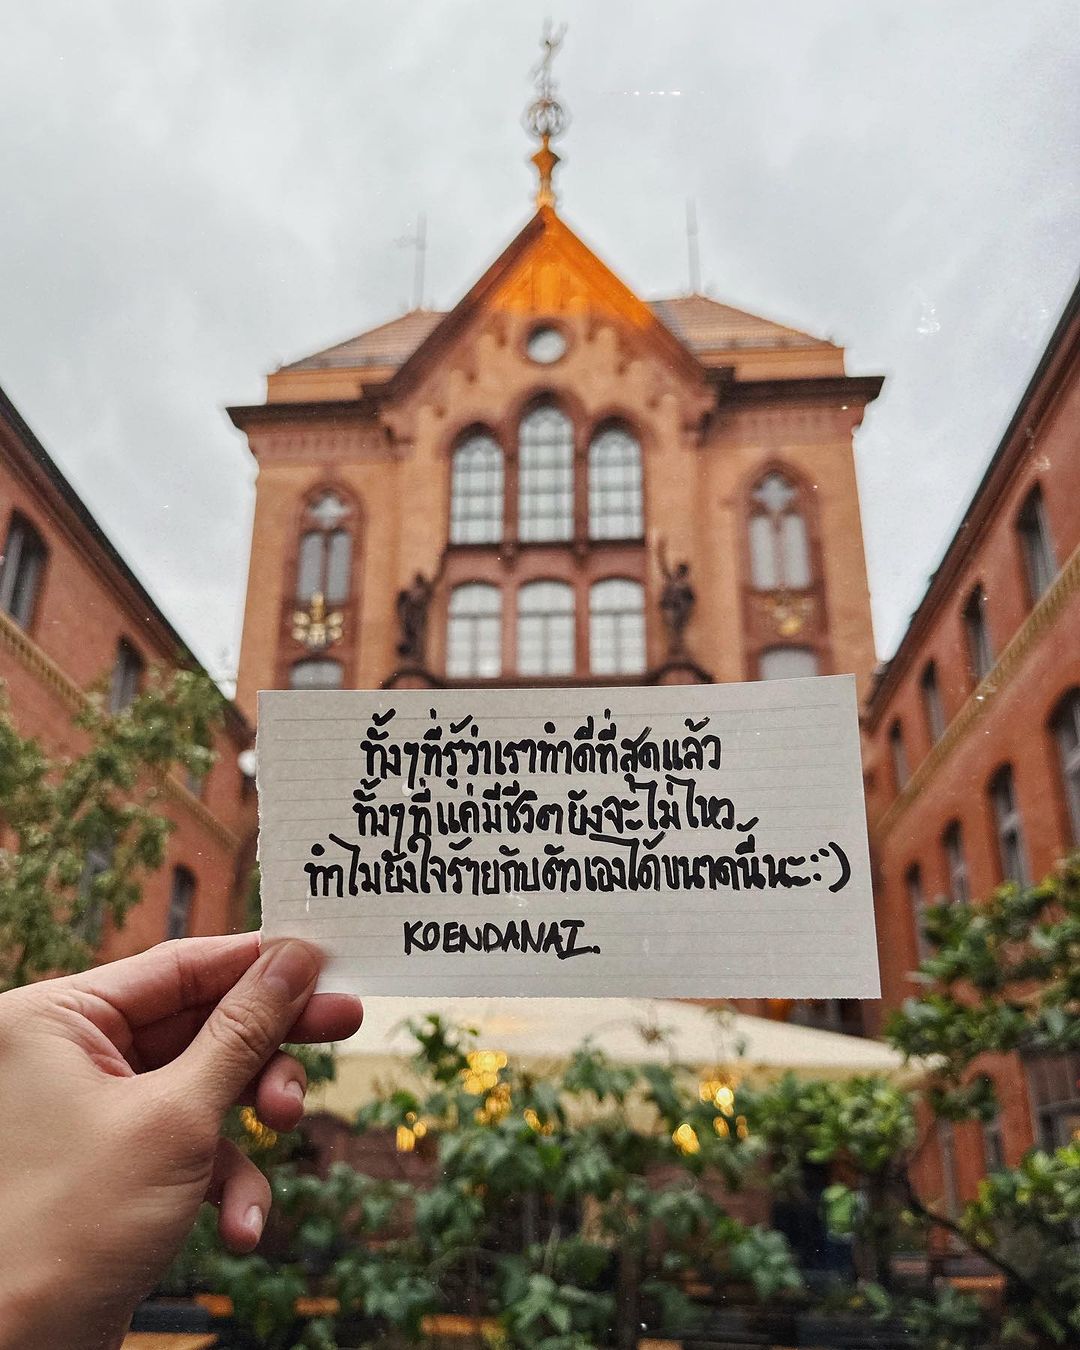 ทั้งๆที่รู้ว่าเราทำดีที่สุดแล้ว
ทั้งๆที่แค่มีชีวิตยังจะไม่ไหว
ทำไมยังใจร้ายกับตัวเองได้ขนาดนี้นะ:)
KOENDANAI.